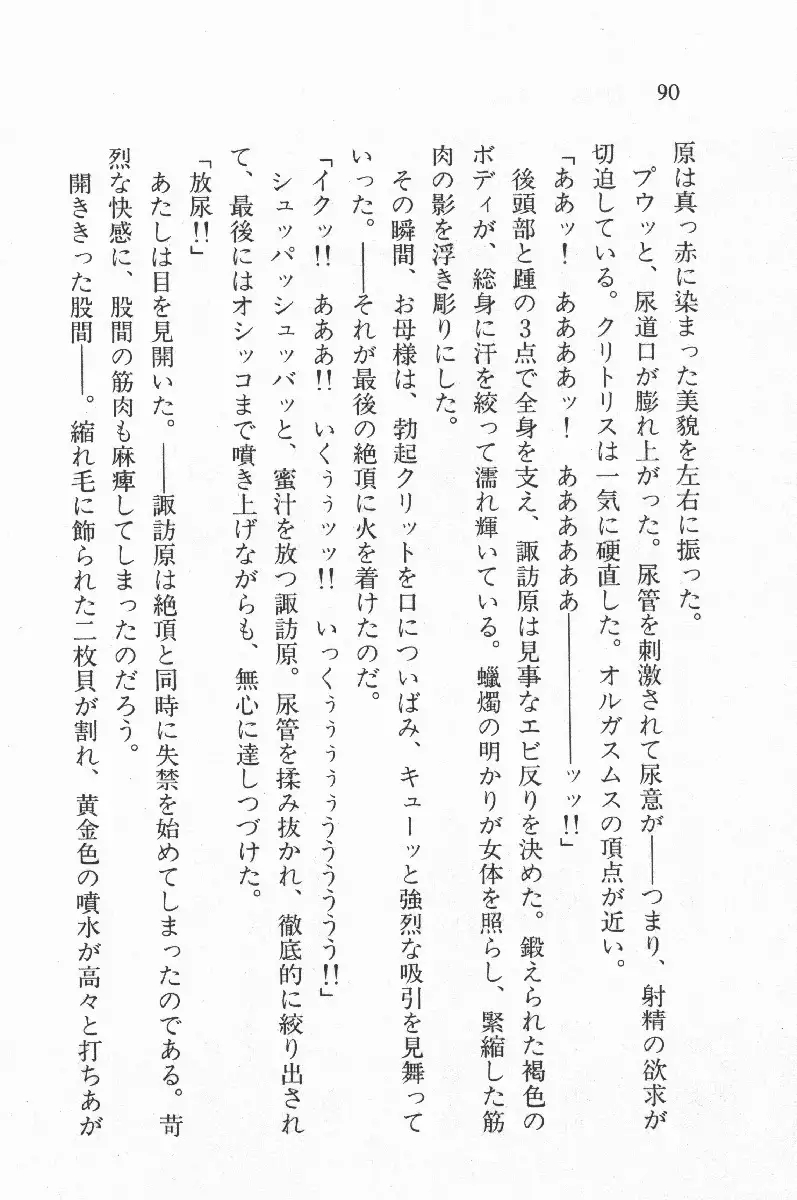 90
原は真っ赤に染まった美貌を左右に振った。
プウッと、尿道口が膨れ上がった。尿管を刺激されて尿意が――つまり、射精の欲求が
切迫している。クリトリスは一気に硬直した。オルガスムスの頂点が近い。
「ああッ！　ああああッ！　ああああああ――――――ッッ!!」
後頭部と踵の３点で全身を支え、諏訪原は見事なエビ反りを決めた。鍛えられた褐色の
ボディが、総身に汗を絞って濡れ輝いている。蠟燭の明かりが女体を照らし、緊縮した筋
肉の影を浮き彫りにした。
その瞬間、お母様は、勃起クリットを口についばみ、キューッと強烈な吸引を見舞って
いった。――それが最後の絶頂に火を着けたのだ。
「イクッ!!　あああ!!　いくぅぅッッ!!　いっくぅぅぅぅぅうううううう!!」
シュッパッシュッバッと、蜜汁を放つ諏訪原。尿管を揉み抜かれ、徹底的に絞り出され
て、最後にはオシッコまで噴き上げながらも、無心に達しつづけた。
「放尿!!」
あたしは目を見開いた。――諏訪原は絶頂と同時に失禁を始めてしまったのである。苛
烈な快感に、股間の筋肉も麻痺してしまったのだろう。
開ききった股間――。縮れ毛に飾られた二枚貝が割れ、黄金色の噴水が高々と打ちあが